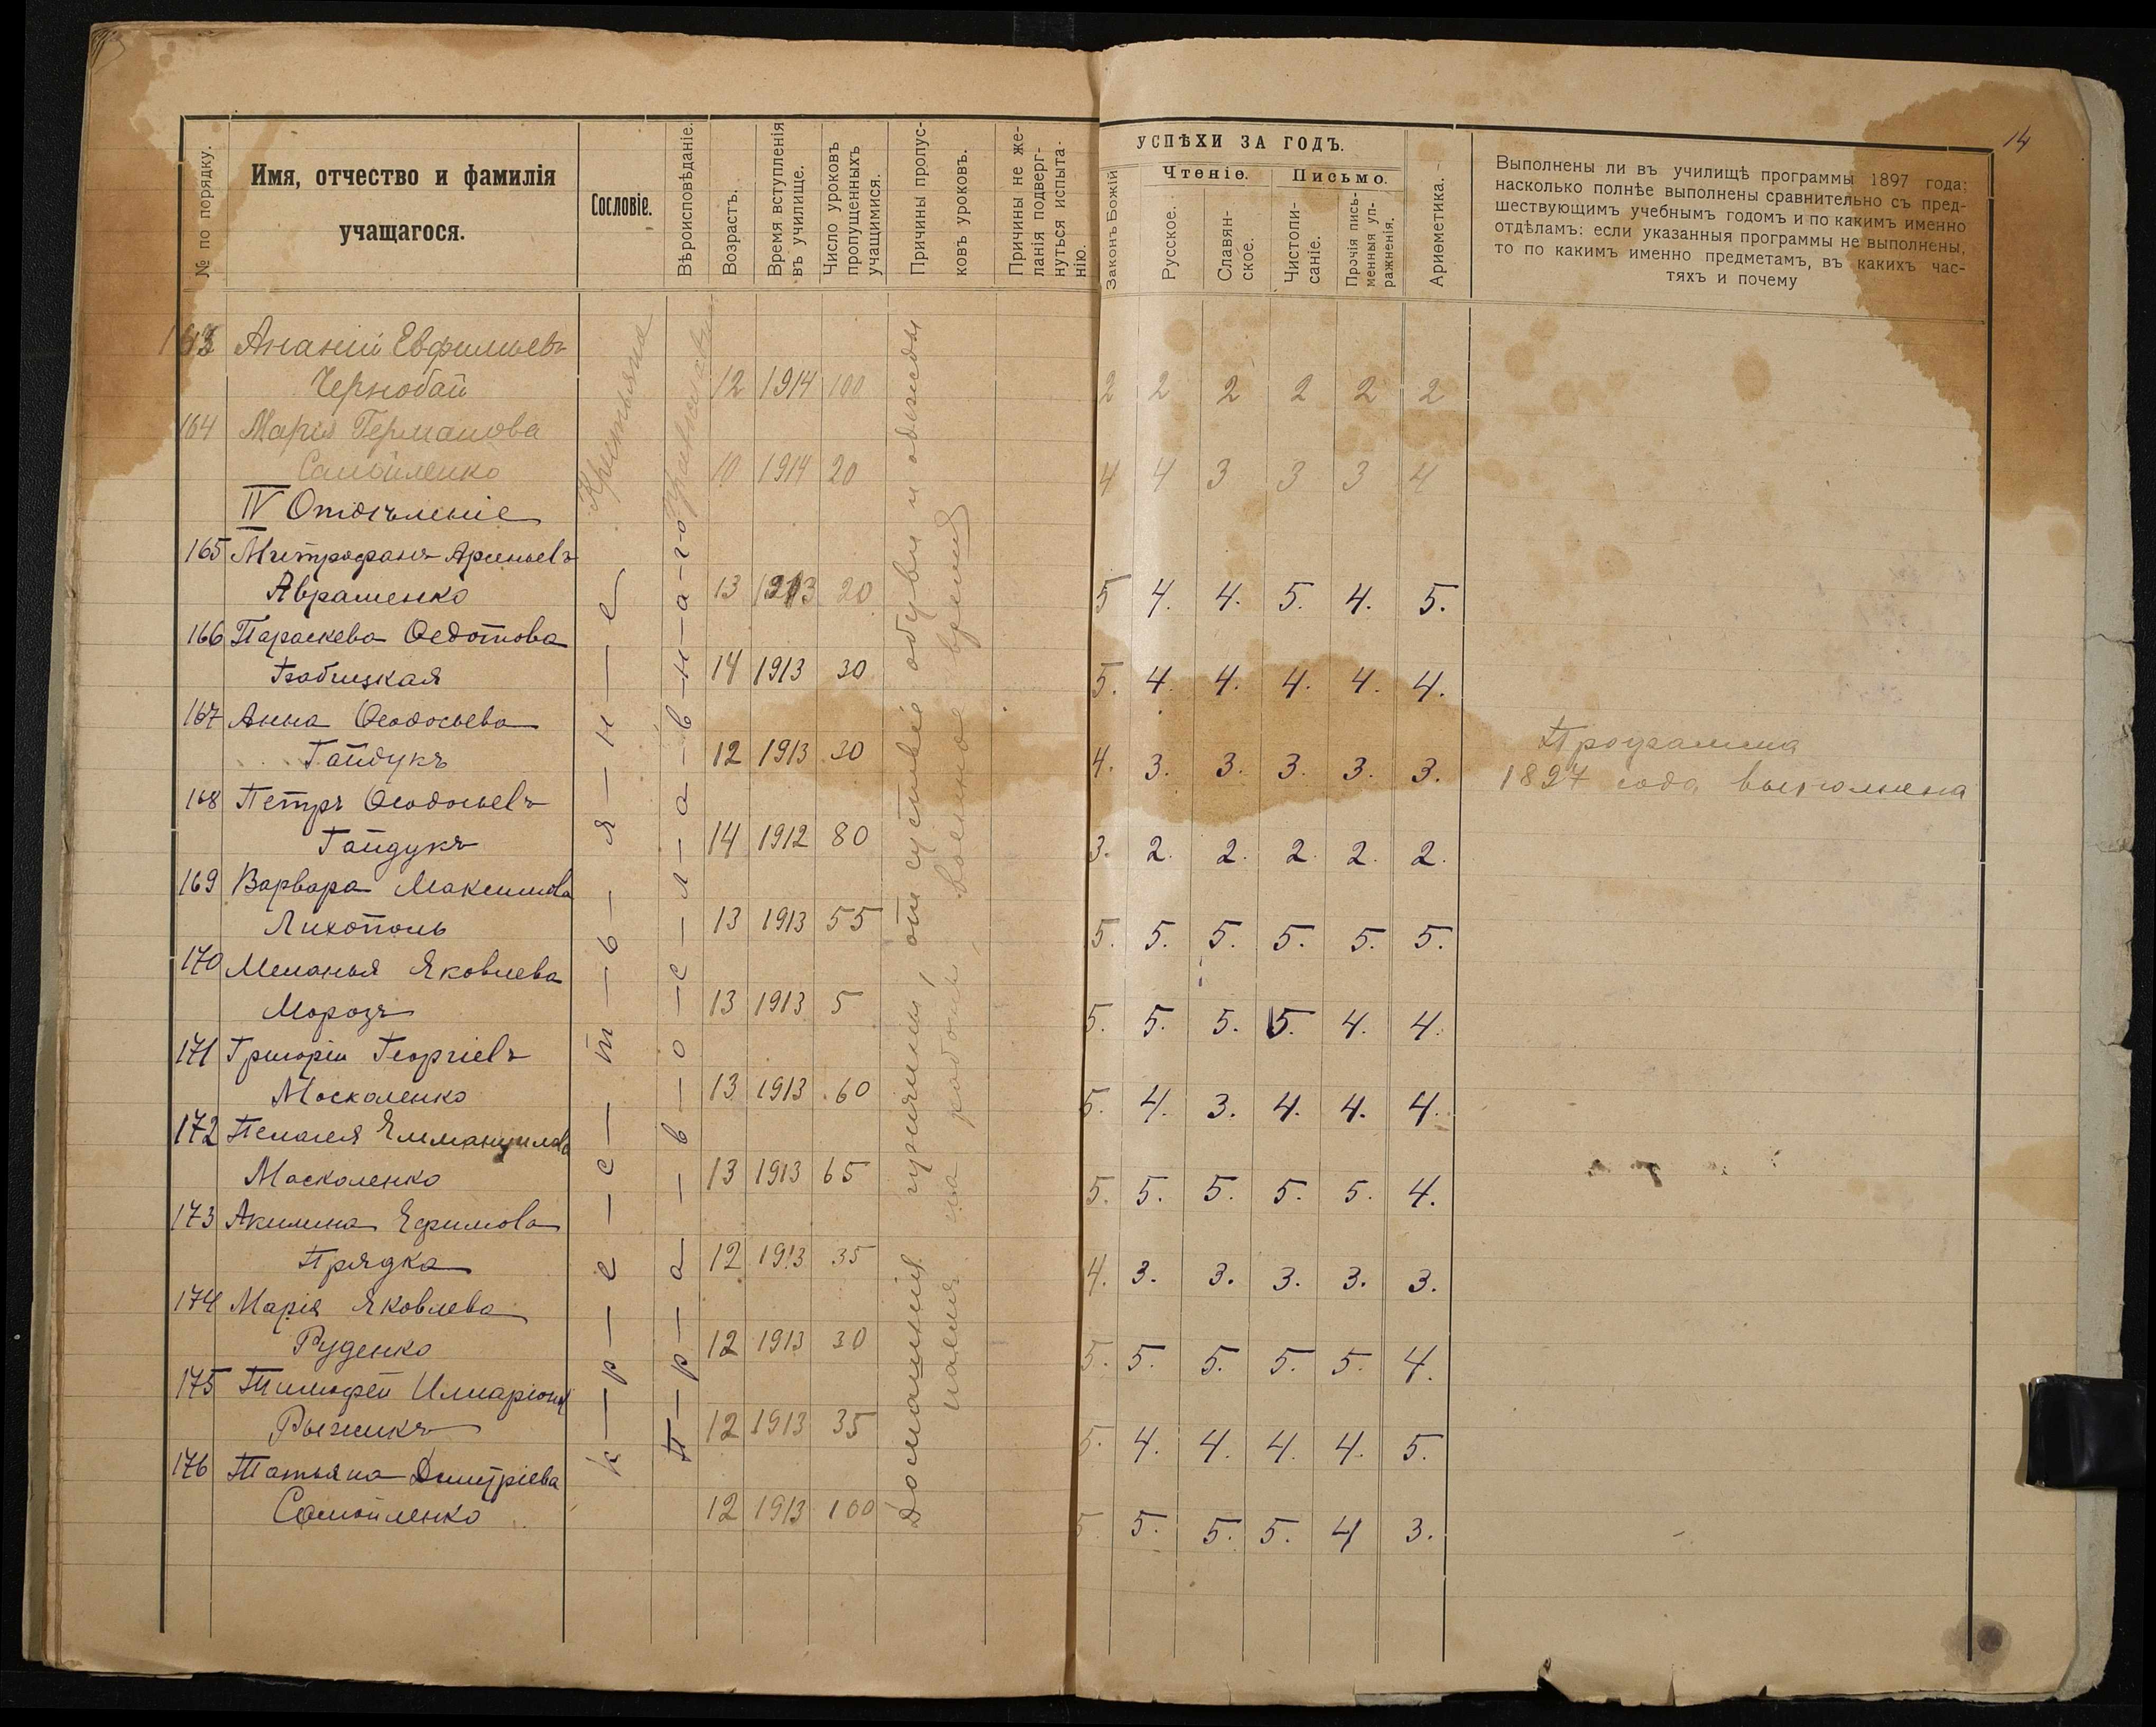 14
№ по порядку.
Имя, отчество и фамилія
учащагося.
Сословіе.
Вѣроисповѣданіе.
Возрастъ.
Время вступленія
въ училище.
Число уроковъ
пропущенныхъ
учащимися.
Причины пропус-
ковъ уроковъ.
Причины не же-
ланія подверг-
нуться испыта-
нію.
УСПѢХИ ЗА ГОДЪ.
Законъ Божій
Чтеніе.
Русское.
Славян-
ское.
Письмо.
Чистопи-
саніе.
Прочія пись-
менныя уп-
ражненія.
Ариѳметика.
Выполнены ли въ училищѣ программы 1897 года;
насколько полнѣе выполнены сравнительно съ пред-
шествующимъ учебнымъ годомъ и по какимъ именно
отдѣламъ: если указанныя программы не выполнены,
то по какимъ именно предметамъ, въ какихъ час-
тяхъ и почему
163 Ананій Евфимьевъ
Чернобай 12 1914 100 2 2 2 2 2 2
164 Марія Германова
Самойленко 10 1914 20 4 4 3 3 3 4
IV Отдѣленіе
165 Митрофанъ Арсеньевъ
Авраменко 13 1913 20 5 4. 4. 5. 4. 5.
166 Параскева Ѳедотова
Бабицкая 14 1913 30 5. 4. 4. 4. 4. 4.
167 Анна Ѳеодосьева
Гайдукъ 12 1913 30 4. 3. 3. 3. 3. 3.
168 Петръ Ѳеодосьевъ
Гайдукъ 14 1912 80 3. 2. 2. 2. 2. 2.
169 Варвара Максимова
Лихополь 13 1913 55 5. 5. 5. 5. 5. 5.
170 Меланья Яковлева
Морозъ 13 1913 5 5. 5. 5. 5. 4. 4.
171 Григорій Георгіевъ
Москаленко 13 1913 60 5. 4. 3. 4. 4. 4.
172 Пелагея Еммануилова
Москаленко 13 1913 65 5. 5. 5. 5. 5. 4.
173 Акилина Ефимова
Прядка 12 1913 35 4. 3. 3. 3. 3. 3.
174 Марія Яковлева
Руденко 12 1913 30 5. 5. 5. 5. 5. 4.
175 Тимофей Иларіон
Рыжикъ 12 1913 35 5. 4. 4. 4. 4. 5.
176 Татьяна Димитріева
Самойленко 12 1913 100 5. 5. 5. 5. 4 3.
Крестьяне
к-р-е-с-т-ь-я-н-е
П-р-а-в-о-с-л-а-в-н-а-г-о
Домашнія причины, отсутствіе обуви и одежды
наемъ на работы, военное время
Программа
1897 года выполнена